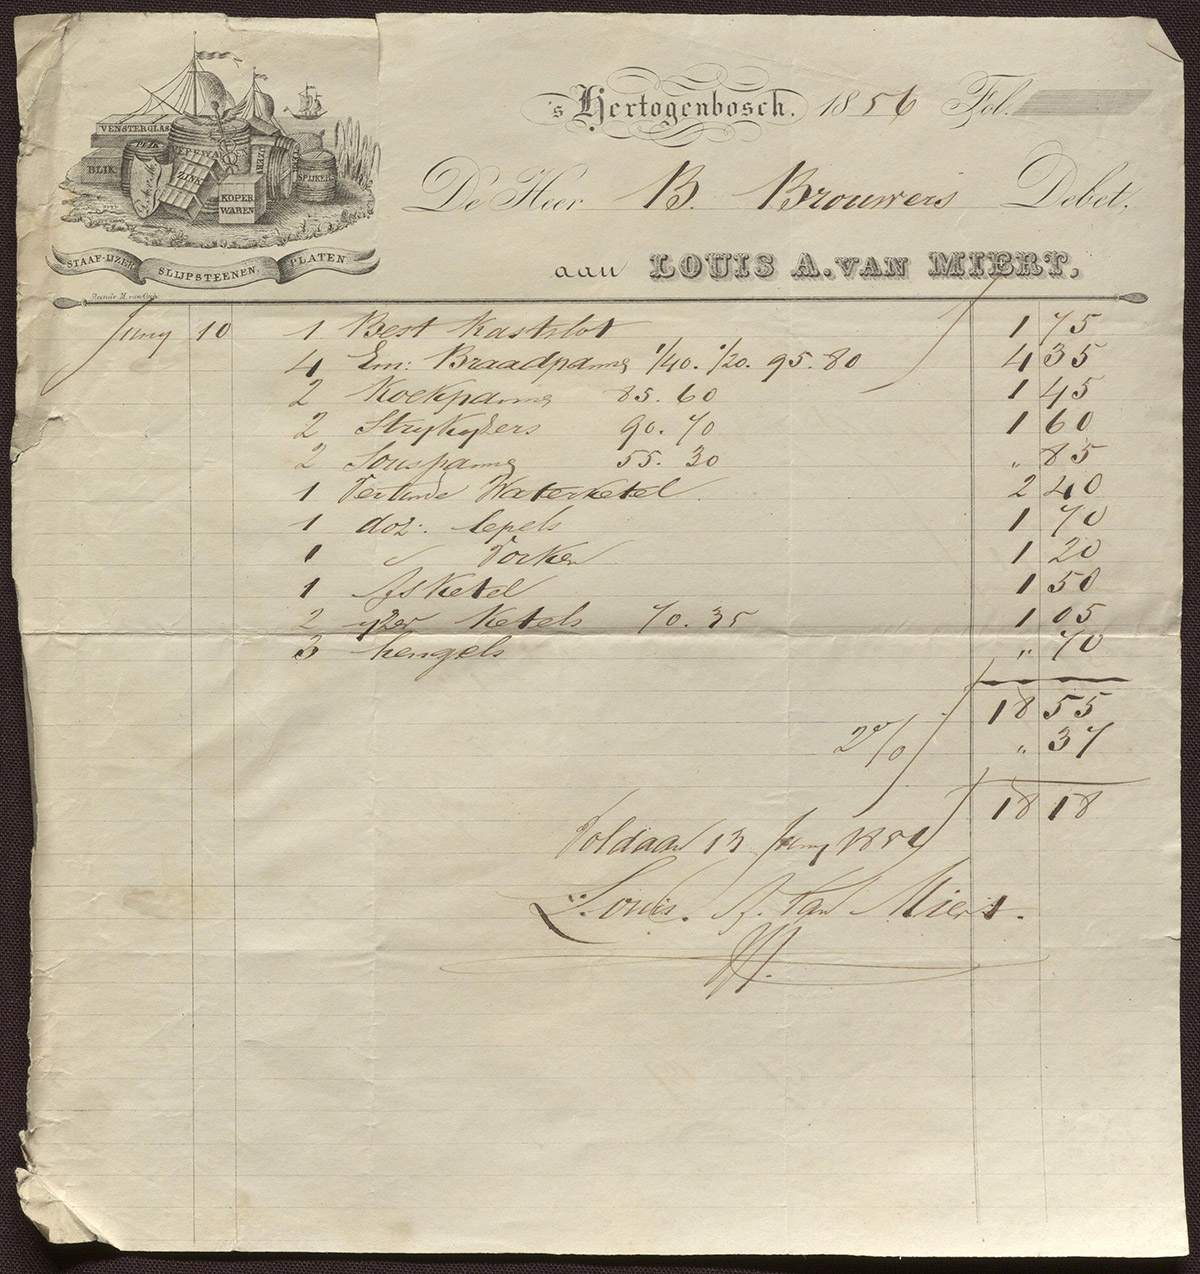 VENSTERGLAS
BLIK
PEIK
VERFWAREN
ZINK
IJZER
KOPER
WAREN
SPIJKERS
STAAF-IJZER SLIJPSTEENEN. PLATEN
's Hertogenbosch. 1856 Fol.
De Heer B. Brouwers Debet,
aan LOUIS A. VAN MIERT,
Juny 10 1 Best Kastslot 1 75
4 Em: Braadpanne 1/40. 1/20. 95. 80 4 35
2 Koekpanne 85. 60 1 45
2 Strykyzers 90. 70 1 60
2 Souspanne 55. 30 " 85
1 Vertinde Waterketel 2 40
1 doz: lepels 1 70
1 " Vorken 1 20
1 Asketel 1 50
2 yzer Ketels 70. 35 1 05
3 hengels " 70
18 55
2% " 37
18 18
Voldaan 13 Juny 1856
Louis. A. Van Miert.